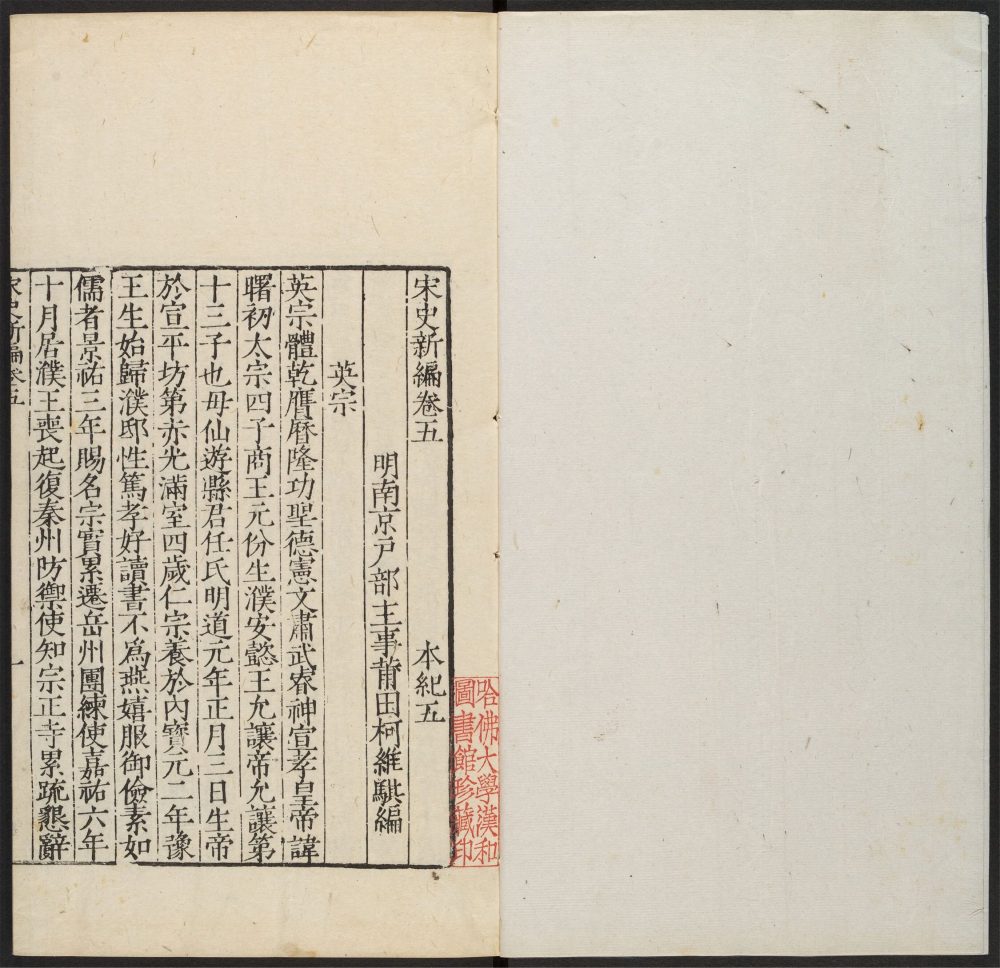 宋史新編卷五　本紀五
明南京戶部主事莆田柯維騏編
英宗
英宗體乾膺曆隆功聖德憲文肅武睿神宣孝皇帝諱
曙初太宗四子商王元份生濮安懿王允讓帝允讓第
十三子也母仙遊縣君任氏明道元年正月三日生帝
於宣平坊第赤光滿室四歲仁宗養於內寶元二年豫
王生始歸濮邸性篤孝好讀書不爲燕嬉服御儉素如
儒者景祐三年賜名宗實累遷岳州團練使嘉祐六年
十月居濮王喪起復秦州防禦使知宗正寺累疏懇辭
宋史新編卷五　一
哈佛大學漢和
圖書館珍藏印